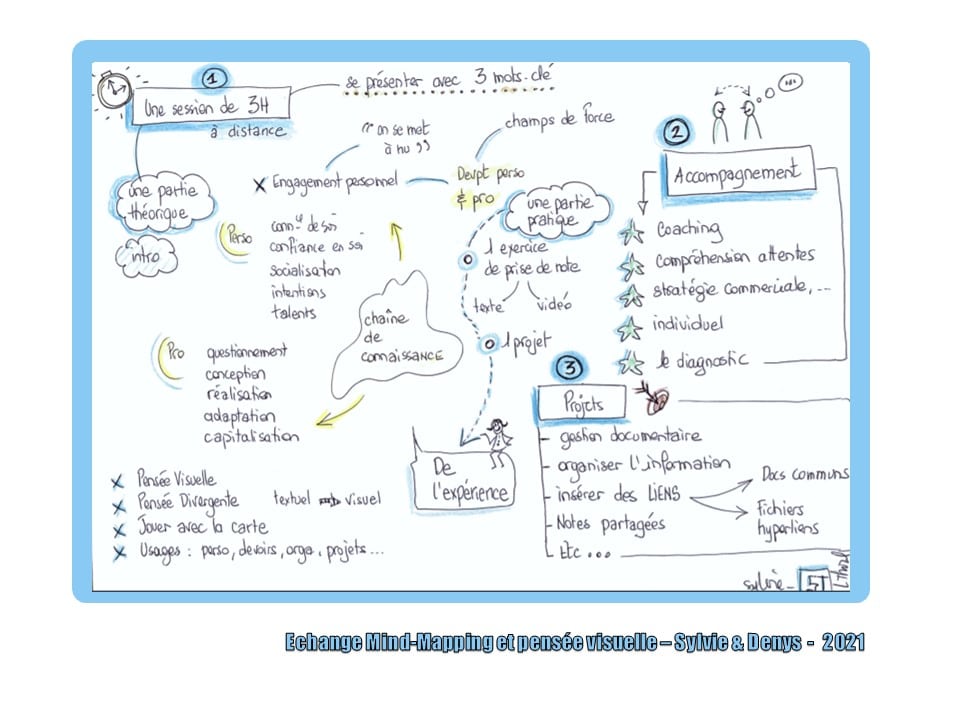 1
Une session de 3H
à distance
se présenter avec 3 mots-clé
une partie
théorique
intro
"on se met
à nu"
champs de force
X Engagement personnel
Devpt perso
& pro
Perso
conn.ce de soi
confiance en soi
socialisation
intentions
talents
Pro
questionnement
conception
réalisation
adaptation
capitalisation
chaîne
de
connaissance
une partie
pratique
1 exercice
de prise de note
texte vidéo
1 projet
De
l'expérience
X Pensée Visuelle
X Pensée Divergente textuel visuel
X Jouer avec la carte
X Usages : perso, devoirs, orga., projets ...
2
Accompagnement
coaching
compréhension attentes
stratégie commerciale, ...
individuel
le diagnostic
3
Projets
gestion documentaire
organiser l'information
insérer des LIENS
Docs communs
Fichiers
hyperliens
Notes partagées
Etc ...
Sylvie
ST
Echange Mind-Mapping et pensée visuelle – Sylvie & Denys - 2021